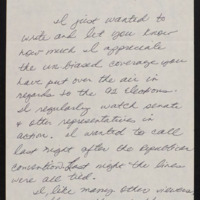 I just wanted to
write and let you know
how much I appreciate
the un biased coverage you
have put over the air in
regards to the 92 elections.
I regularly watch senate
& other representatives in
action. I wanted to call
last night after the republican
convention. Last night the lines
were all tied.
I like many other viewers